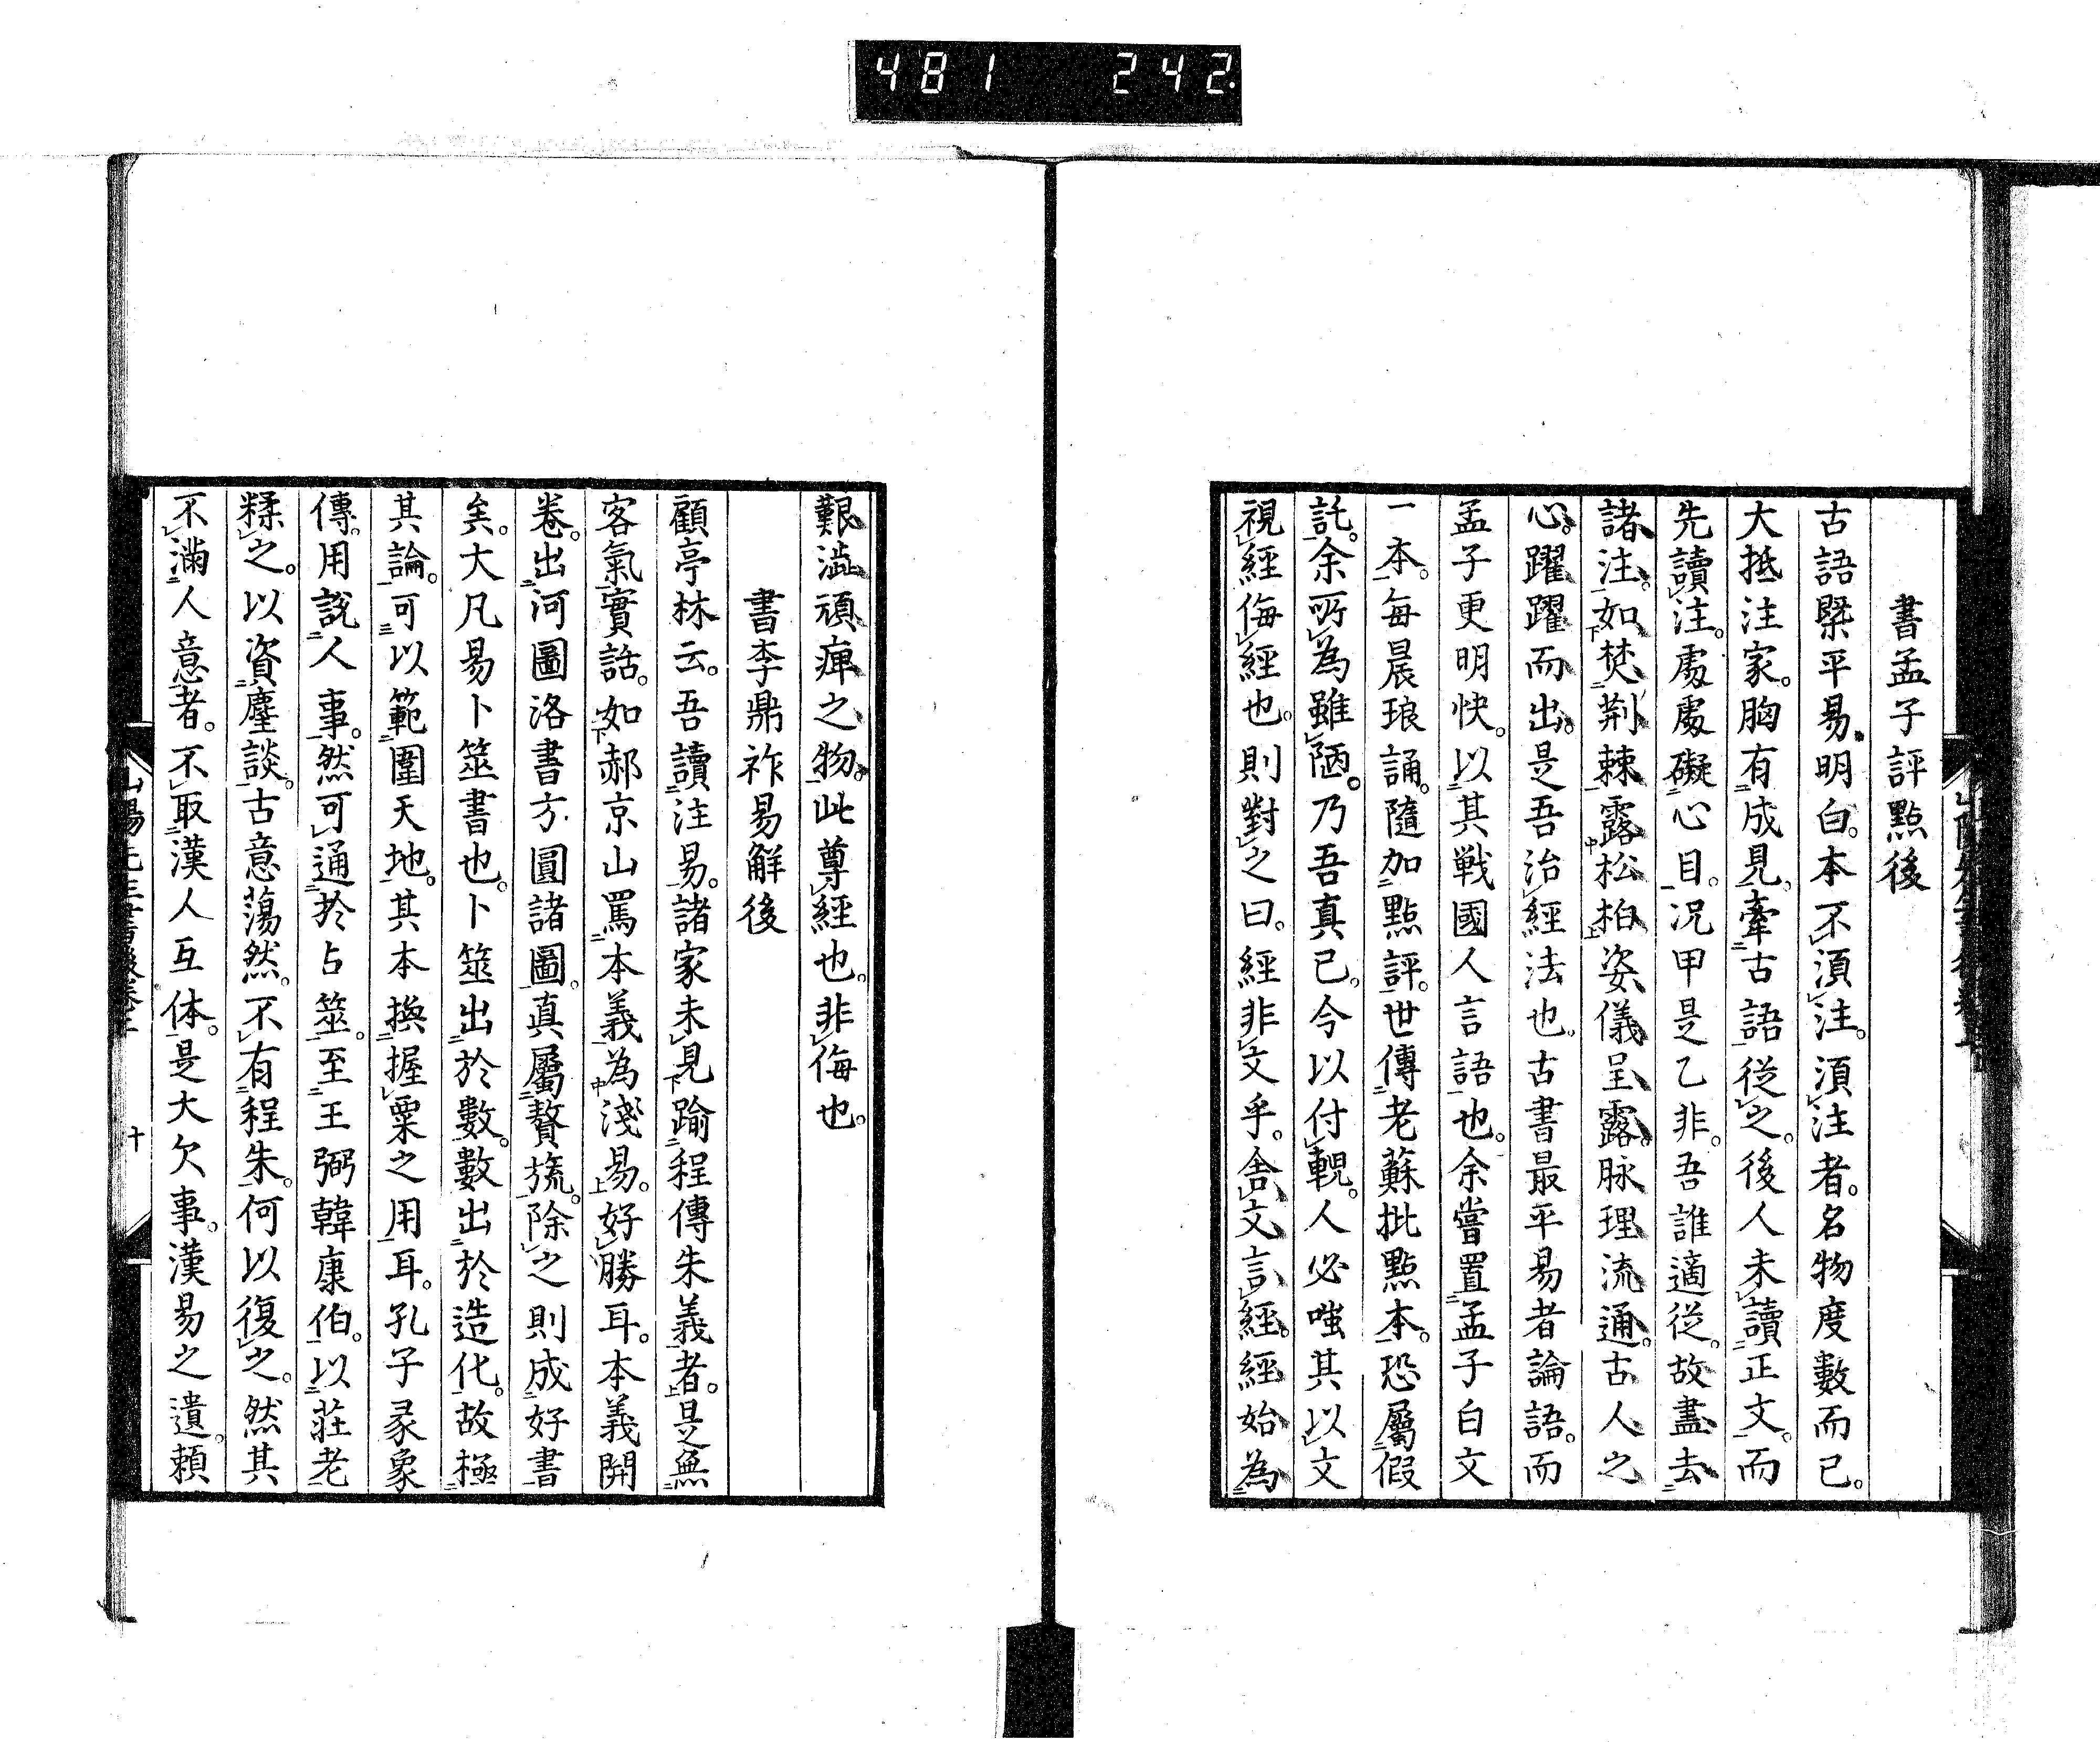 481 242
書孟子評點後
古語槩平易。明白。本不須注。須注者。名物度數而已。
大抵注家。胸有成見。牽古語從之。後人未讀正文。而
先讀注。處處礙心目。況甲是乙非。吾誰適從。故盡去
諸注。如焚荆棘露松柏。姿儀呈露。脉理流通。古人之
心。躍躍而出。是吾治經法也。古書最平易者論語。而
孟子更明快。以其戰國人言語也。余嘗置孟子白文
一本。每晨琅誦。隨加點評。世傳老蘇批點本。恐屬假
託。余所為雖陋。乃吾真已。今以付輗。人必嗤其以文
視經侮經也。則對之曰。經非文乎。舍文言經。經始為
艱澁頑痺之物。此尊經也。非侮也。
書李鼎祚易解後
顧亭林云。吾讀注易。諸家未見踰程傳朱義者。是無
客氣實話。如郝京山罵本義為淺易。好勝耳。本義開
卷。出河圖洛書方圓諸圖。真屬贅旒。除之則成好書
矣。大凡易卜筮書也。卜筮出於數。數出於造化。故極
其論。可以範圍天地。其本換握粟之用耳。孔子彖象
傳。用說人事。然可通於占筮。至王弼韓康伯。以莊老
糅之。以資塵談。古意蕩然。不有程朱。何以復之。然其
不滿人意者。不取漢人互体。是大欠事。漢易之遺。頼
十